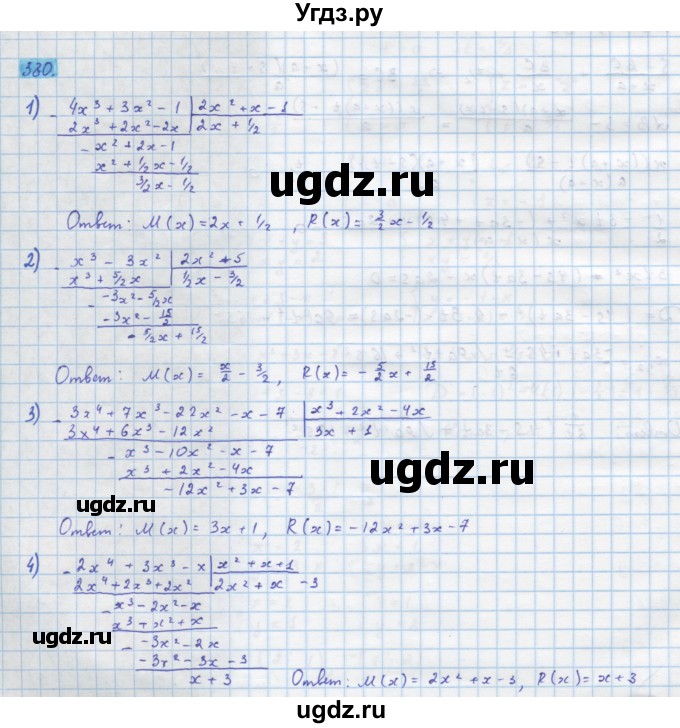 Угдз.ру
530.
1) - 4x³ + 3x² - 1 | 2x² + x - 1
2x³ + 2x² - 2x | 2x + 1/2
- x² + 2x - 1
x² + 1/2x - 1/2
3/2x - 1/2
ugdz.ru
Ответ: M(x) = 2x + 1/2 , R(x) = 3/2x - 1/2
2) - x³ - 3x² | 2x² + 5
x³ + 5/2x | 1/2x - 3/2
- -3x² - 5/2x
-3x² - 15/2
- 5/2x + 15/2
Ответ: M(x) = x/2 - 3/2 , R(x) = - 5/2x + 15/2
3) - 3x⁴ + 7x³ - 22x² - x - 7 | x³ + 2x² - 4x
3x⁴ + 6x³ - 12x² | 3x + 1
- x³ - 10x² - x - 7
x³ + 2x² - 4x
- 12x² + 3x - 7
ugdz.ru
ugdz.ru
Ответ: M(x) = 3x + 1, R(x) = - 12x² + 3x - 7
4) - 2x⁴ + 3x³ - x | x² + x + 1
2x⁴ + 2x³ + 2x² | 2x² + x - 3
- x³ - 2x² - x
x³ + x² + x
- -3x² - 2x
-3x² - 3x - 3
x + 3
ugdz.ru
ugdz.ru
Ответ: M(x) = 2x² + x - 3, R(x) = x + 3
ugdz.ru